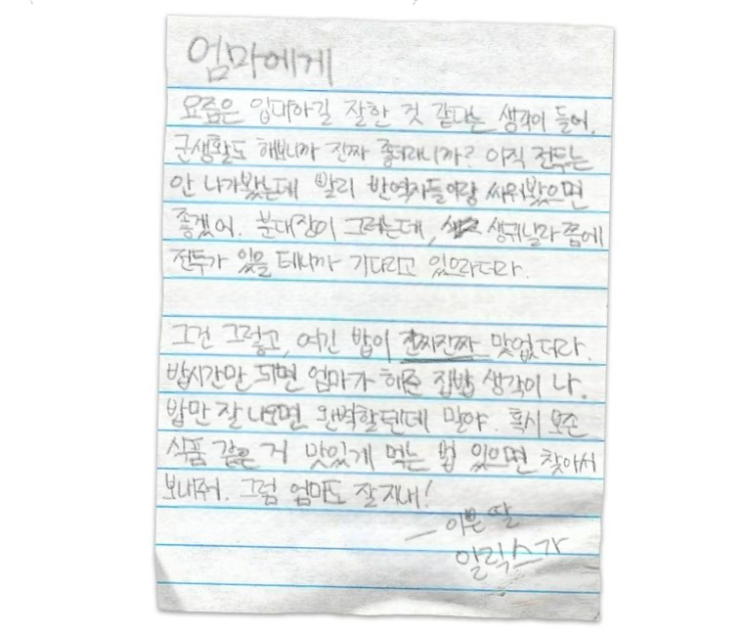 엄마에게
요즘은 입대하길 잘한 것 같다는 생각이 들어.
군생활도 해보니까 진짜 좋더라니까? 아직 전투는
안 나가봤는데 빨리 반역자들이랑 싸워봤으면
좋겠어. 분대장이 그러는데, 생귀날라 쯤에
전투가 있을 테니까 기다리고 있으라더라.
그건 그렇고, 여긴 밥이 진짜진짜 맛없더라.
밥시간만 되면 엄마가 해준 집밥 생각이 나.
밥만 잘 나오면 완벽할텐데 말야. 혹시 보존
식품 같은 거 맛있게 먹는 법 있으면 찾아서
보내줘. 그럼 엄마도 잘 지내!
— 이쁜 딸
알릭스가